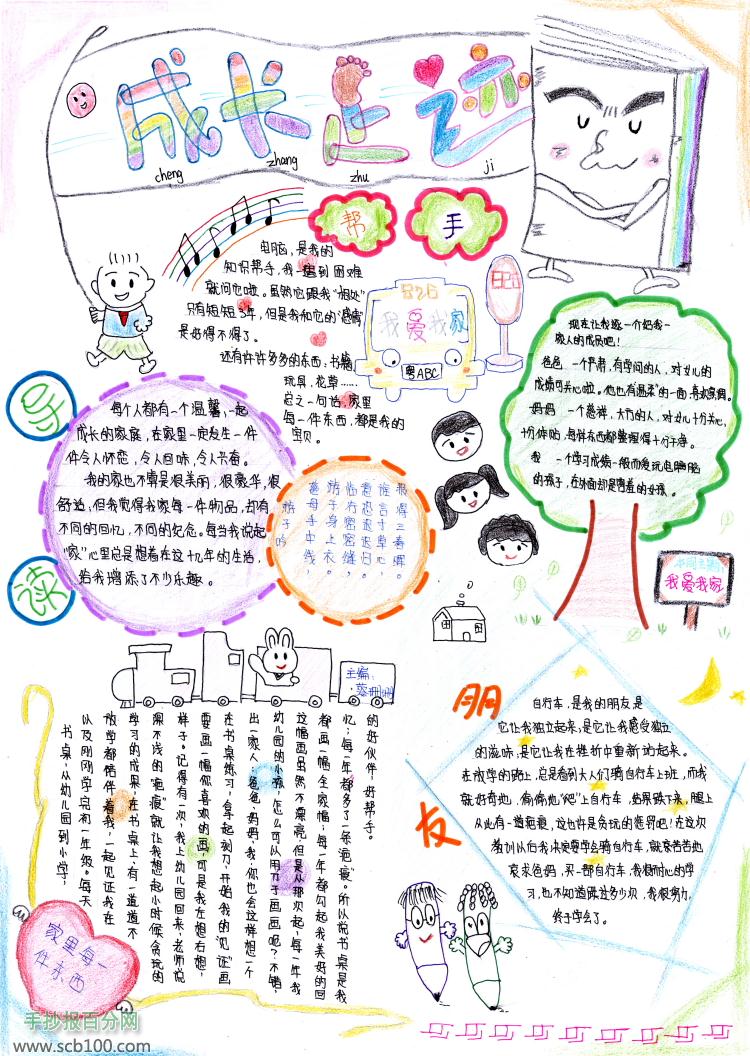 成长足迹
cheng zhang zhu ji
帮手
电脑，是我的
知识帮手，我一遇到困难
就问它啦。虽然它跟我“相处”
只有短短3年，但是我和它的“感情”
是好得不得了。
还有许许多多的东西，书橱
玩具，花草……
总之一句话，家里
每一件东西，都是我的
宝贝。
我爱我家
粤ABC
现在让我逐一个把我一
家人的成员吧！
爸爸 一个严肃，有学问的人，对女儿的
妈妈 一个慈祥，大方的人，对女儿十分关心，
十分体贴，每样东西都整理得十分干净。
我 一个学习成绩一般而爱玩电脑
的孩子，在外面却是害羞的女孩。
导读
每个人都有一个温馨，一起
成长的家庭，在家里一定发生一件
件令人怀恋，令人回味，令人兴奋。
我的家也不算是很美丽，很豪华，很
舒适，但我觉得我家每一件物品，却有
不同的回忆，不同的纪念。每当我说起
“家”心里总是想着在这十几年的生活，
给我增添了不少乐趣。
游子吟
慈母手中线，
游子身上衣。
临行密密缝，
意恐迟迟归。
谁言寸草心，
报得三春晖。
本期主题
我爱我家
主编：
朋友
自行车，是我的朋友是
它让我独立起来，是它让我感受独立
的滋味，是它让我在挫折中重新站起来。
在放学的路上，总是看到大人们骑自行车上班，而我
就好奇地，偷偷地“爬”上自行车，结果跌下来，腿上
从此有一道疤痕，这也许是贪玩的惩罚吧！在这次
教训以后我决定要学会骑自行车，就哀苦苦地
哀求爸妈，买一部自行车，我怀耐心的学
习，也不知道跌过多少次，我很努力，
终于学会了。
家里每一
件东西
书桌：从幼儿园到小学，
以及刚刚学完初一年级。每天
放学都陪伴着我，一起见证我在
学习的成果，在书桌上，有一道道不
深不浅的“疤痕”就让我想起小时候贪玩的
样子。记得有一次，我上幼儿园回来，老师说
要画一幅你喜欢的画，可是我左想右想，
在书桌练习，拿起刻刀，开始我的“见证”画
出一家人；爸爸、妈妈、我，你也会这样想一个
幼儿园的小孩，怎么可以用刀子画画呢？不错，
这幅画虽然不漂亮，但是从那次起，每一年我
都画一幅全家幅；每一年都勾起我美好的回
忆；每一年都多了一条“疤痕”。所以说书桌是我
的好伙伴，好帮手。
手抄报百分网
www.scb100.com